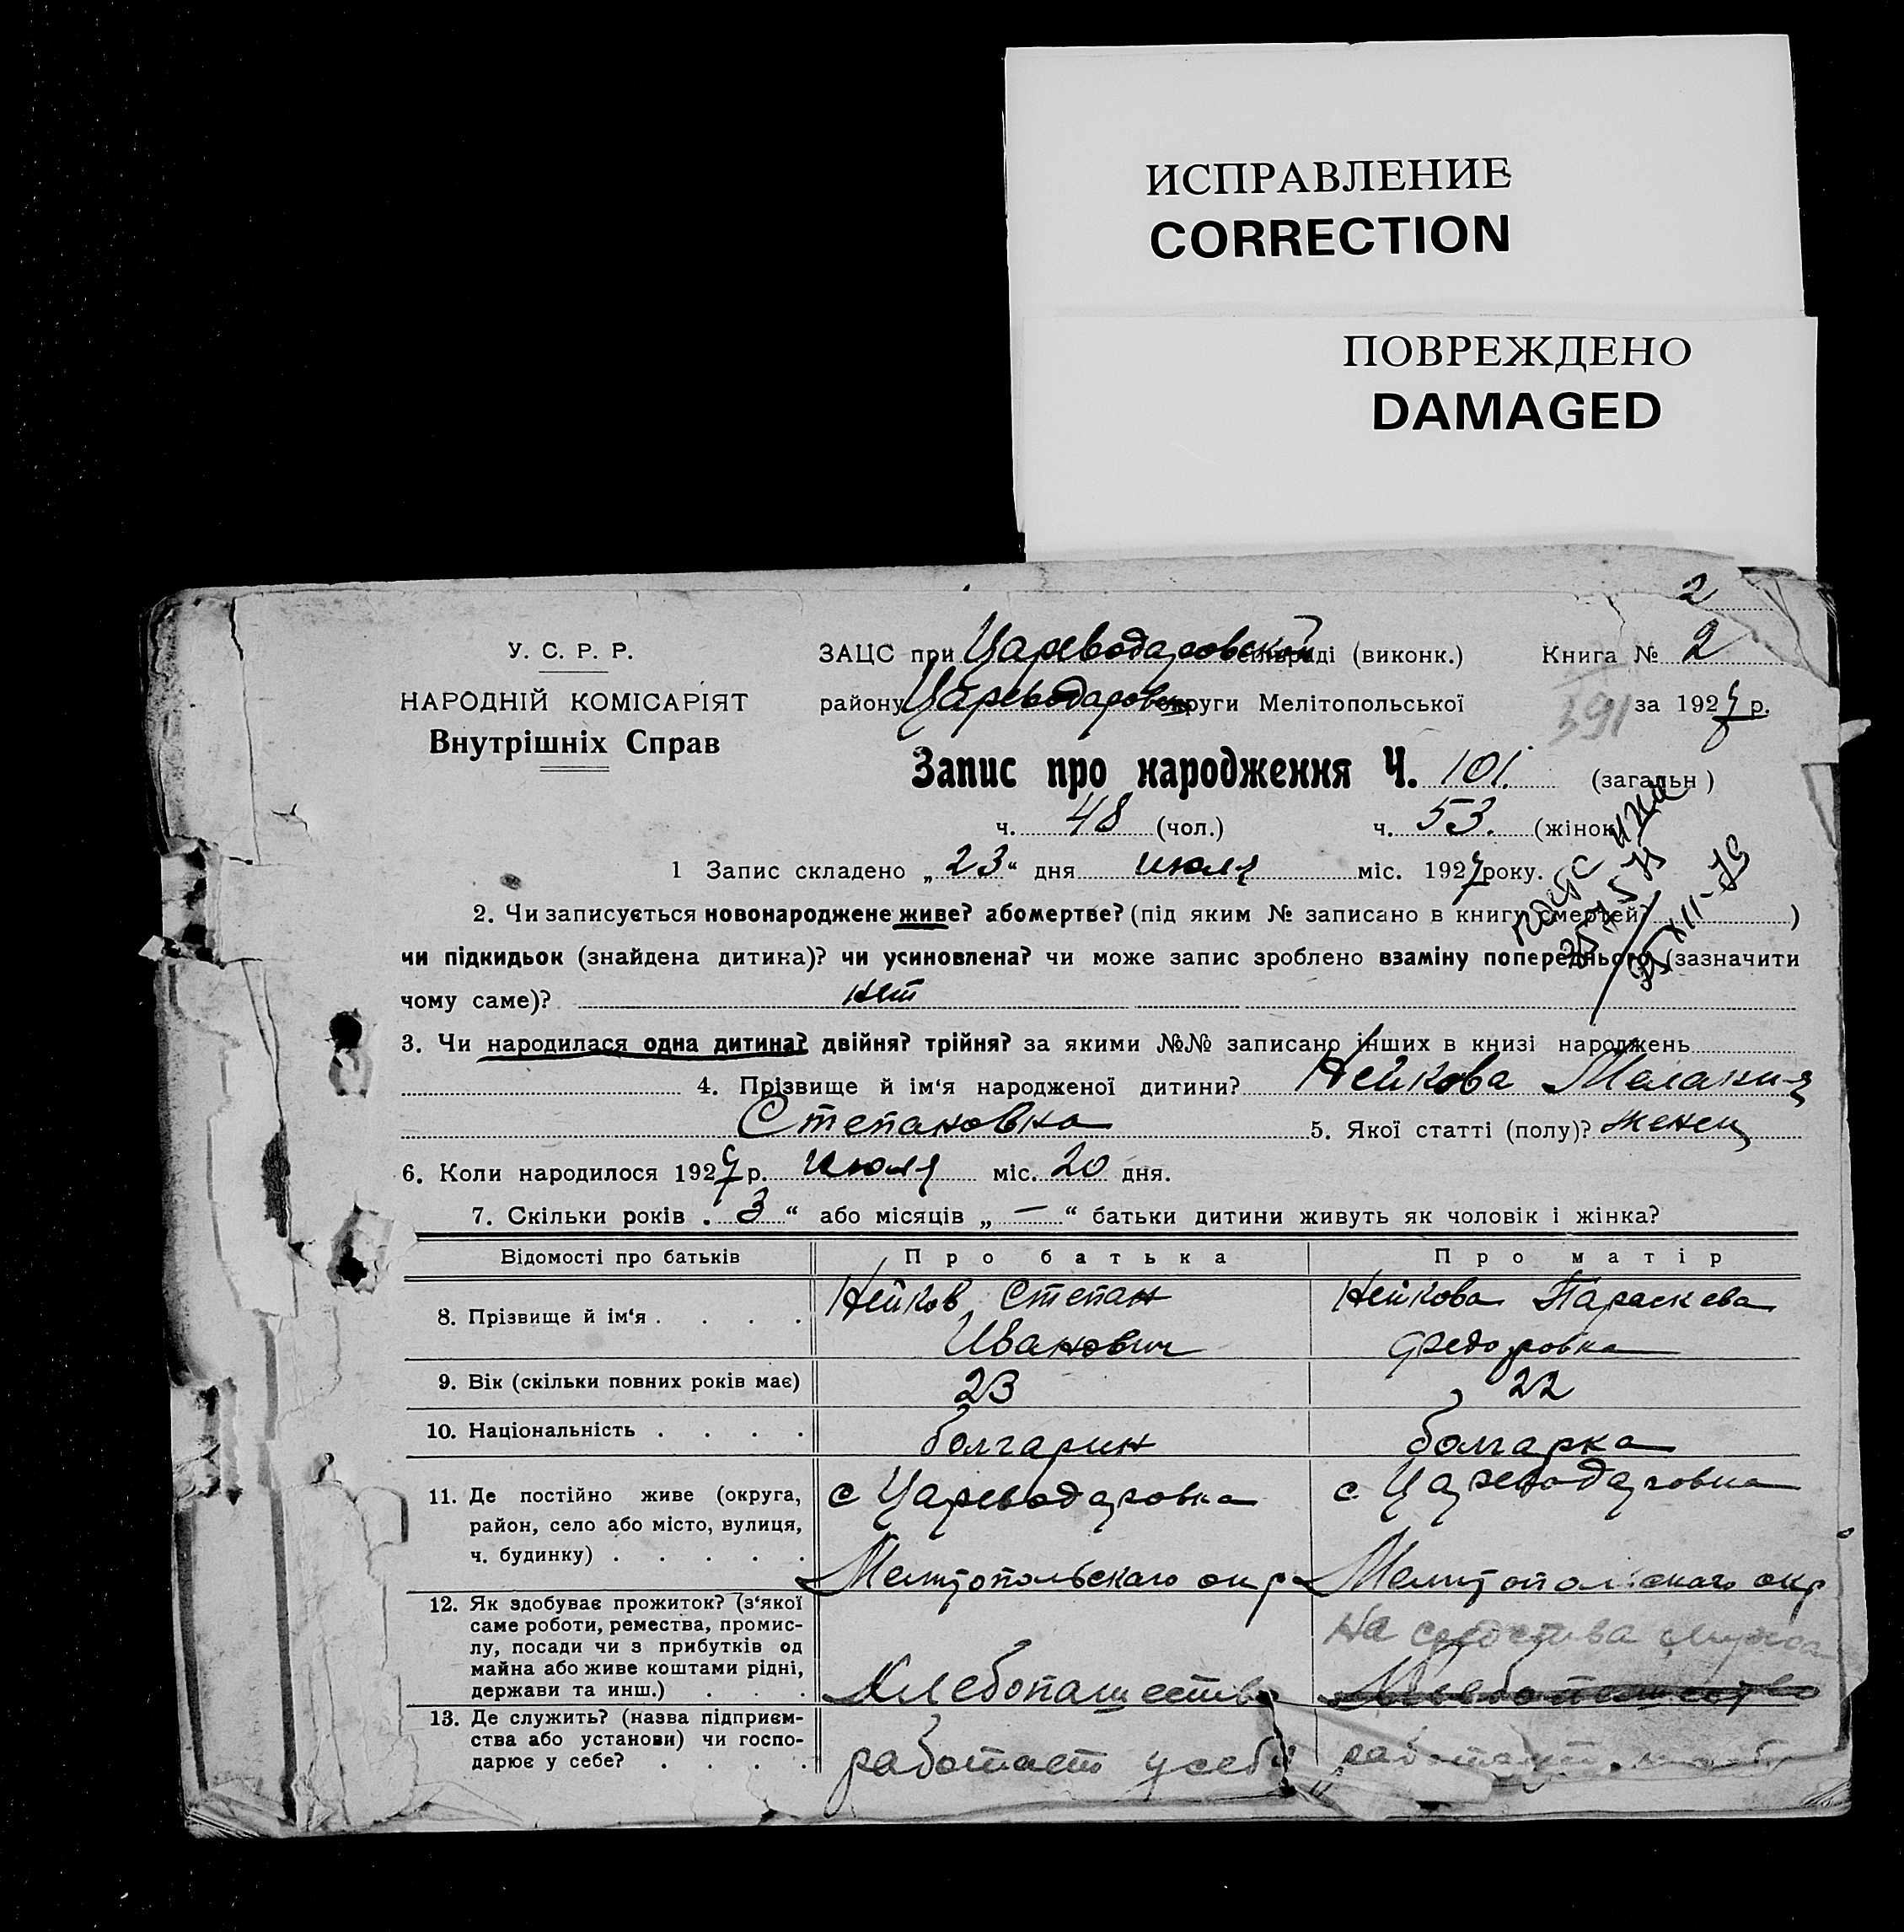 ИСПРАВЛЕНИЕ
CORRECTION
ПОВРЕЖДЕНО
DAMAGED
2
У. С. Р. Р.
ЗАЦС при Цареводаровской сільраді (виконк.) Книга № 2
НАРОДНІЙ КОМІСАРІЯТ
району Цареводаровск округи Мелітопольської 391 за 1927 р.
Внутрішніх Справ
Запис про народження Ч. 101. (загальн)
ч. 48 (чол.) ч. 53. (жінок)
1 Запис складено „23“ дня июля міс. 1927 року.
2. Чи записується новонароджене живе? або мертве? (під яким № записано в книгу смертей? )
чи підкидьок (знайдена дитина)? чи усиновлена? чи може запис зроблено взаміну попереднього (зазначити
чому саме)? нет
3. Чи народилася одна дитина? двійня? трійня? за якими №№ записано інших в книзі народжень
4. Прізвище й ім‘я народженої дитини? Нейкова Мелания
Степановна 5. Якої статті (полу)? женск
6. Коли народилося 1927 р. июля міс. 20 дня.
7. Скільки років „ 3 “ або місяців „ — “ батьки дитини живуть як чоловік і жінка?
Відомості про батьків Про батька Про матір
8. Прізвище й ім‘я . . . . Нейков Степан Нейкова Параскева
Иванович Федоровна
9. Вік (скільки повних років має) 23 22
10. Національність . . . . болгарин болгарка
11. Де постійно живе (округа, с Цареводаровка с Цареводаровка
район, село або місто, вулиця,
ч. будинку) . . . . . Мелитопольскаго окр Мелитопольскаго окр
12. Як здобуває прожиток? (з‘якої
саме роботи, ремества, промис- на средства мужа
лу, посади чи з прибутків од
майна або живе коштами рідні,
держави та инш.) . . . Хлебопашество Хлебопашество
13. Де служить? (назва підприєм-
ства або установи) чи госпо-
дарює у себе? . . . . работает у себя работает